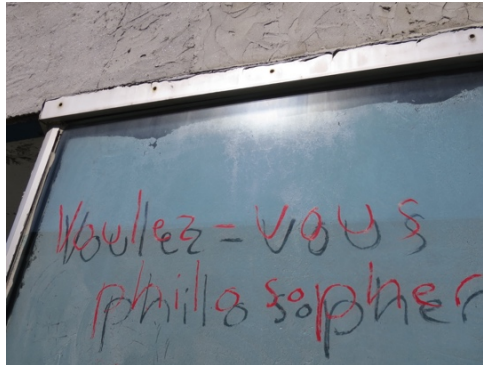 Voulez-vous
philosopher